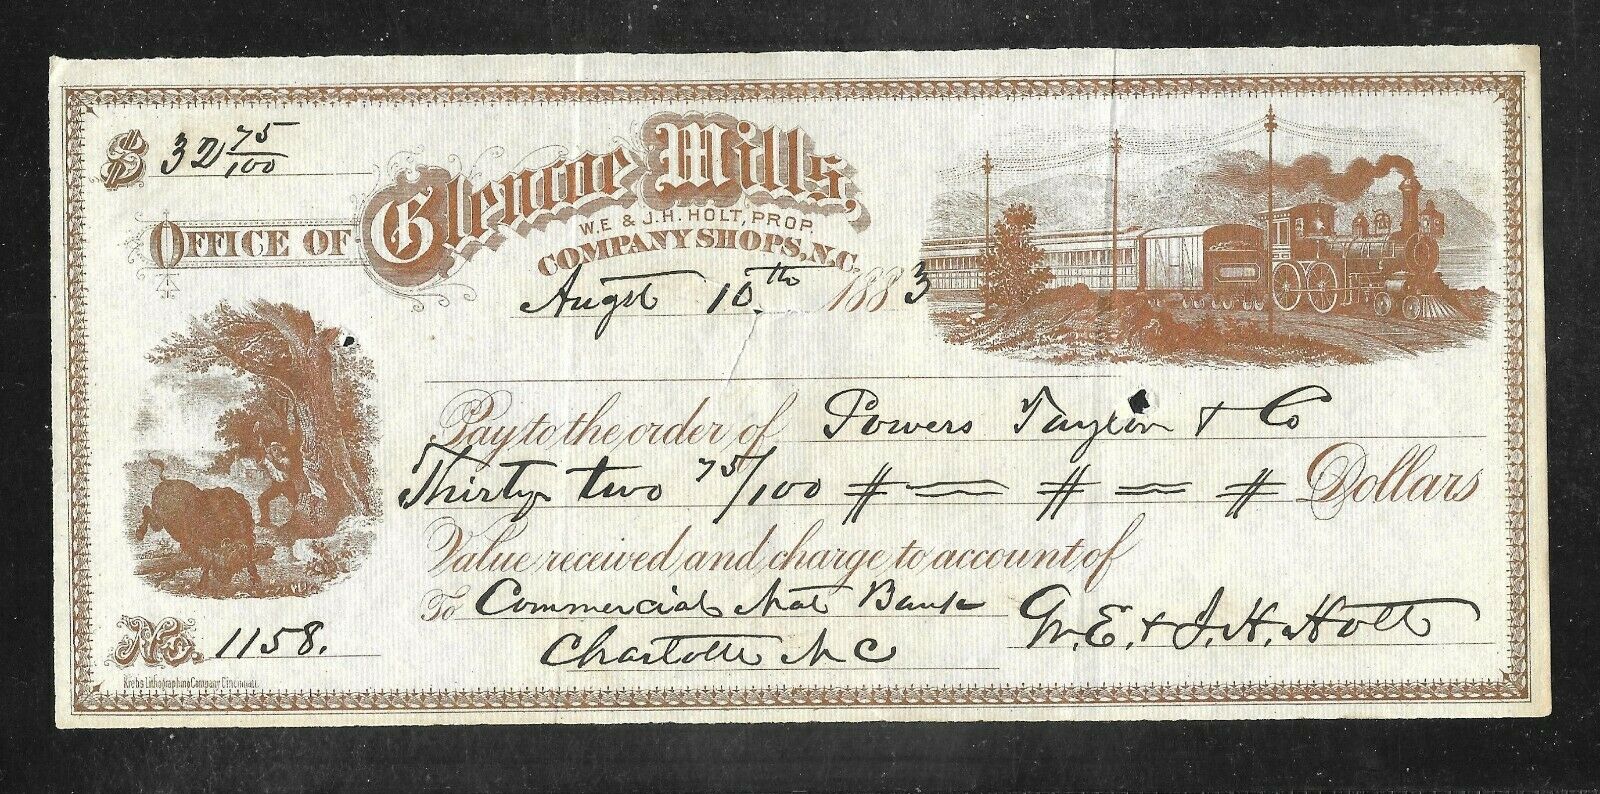 $ 32 75/100
Office of Glencoe Mills,
W.E & J.H. HOLT, PROP.
COMPANY SHOPS, N.C.
Augst 10th 1883
Pay to the order of Powers Taylor & Co
Thirty two 75/100 # — # = # Dollars
Value received and charge to account of
To Commercial Nat Bank
Charlotte N C
W. E. & J. H. Holt
No. 1158.
Krebs Lithographing Company Cincinnati.